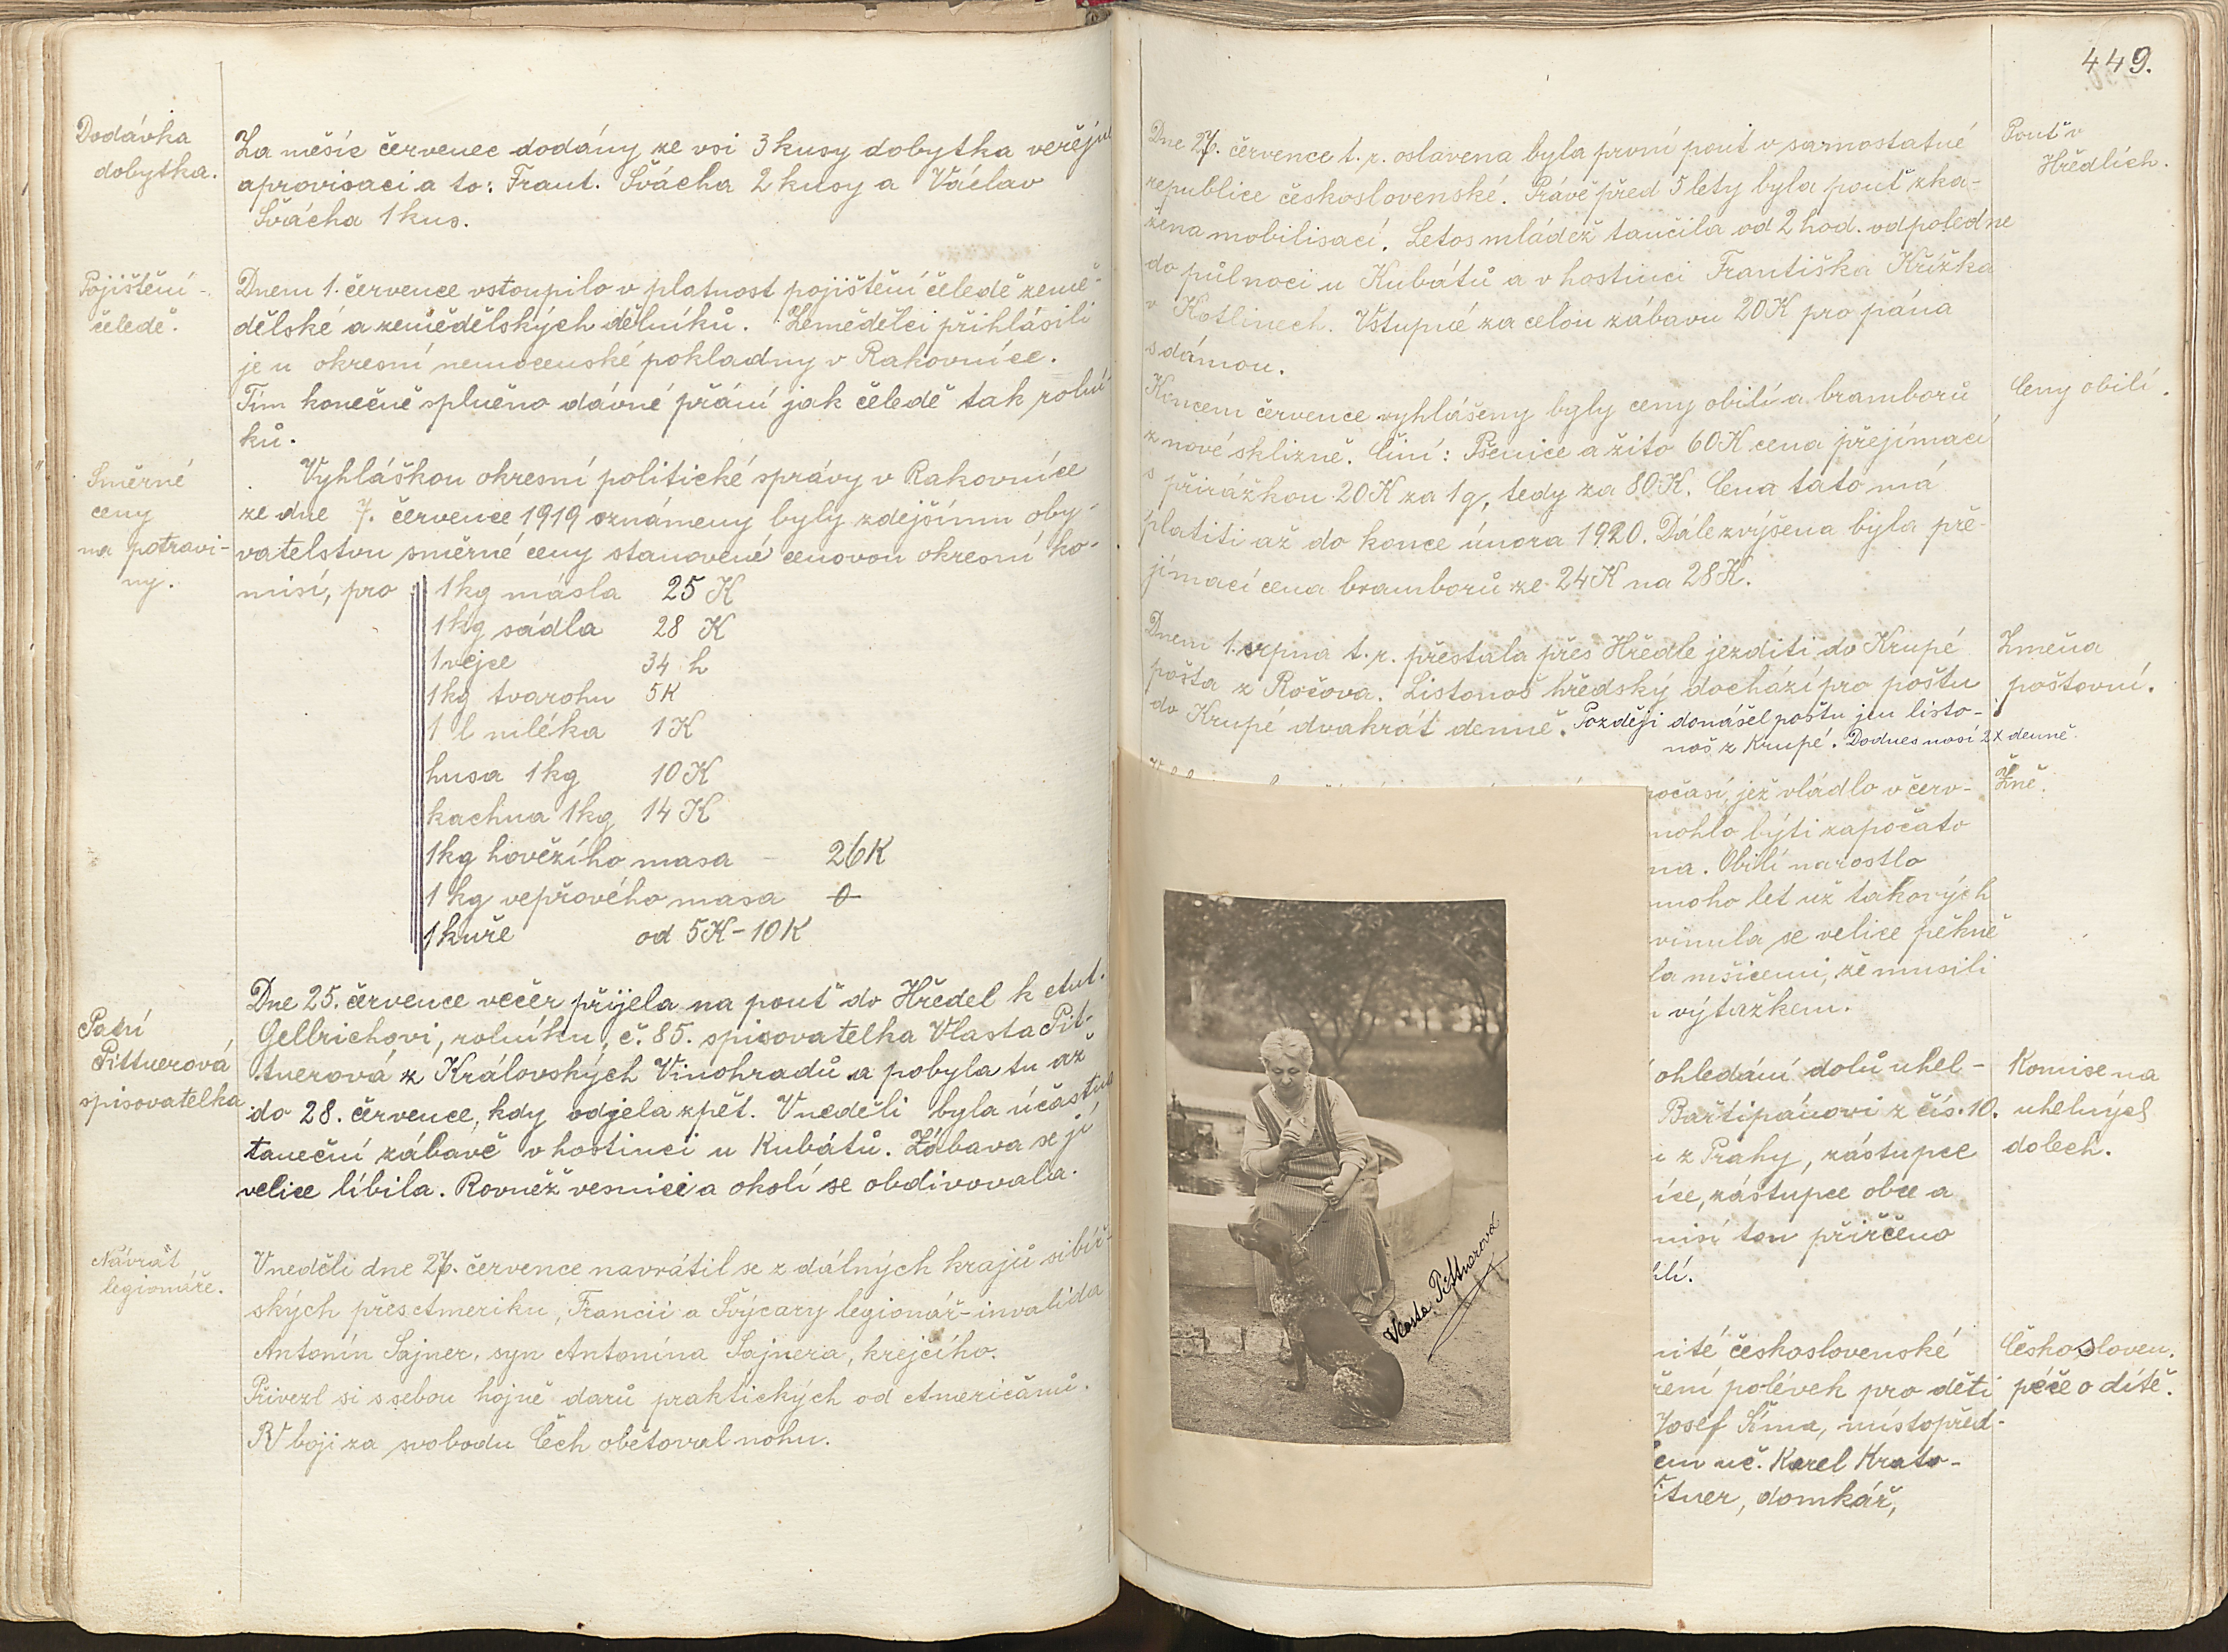 Dodávka
dobytka.
Za měsíc červenec dodány ze vsi 3 kusy dobytka veřejné
aprovisaci a to: Frant. Švácha 2 kusy a Václav
Švácha 1 kus.
Pojištění
čeledě.
Dnem 1. července vstoupilo v platnost pojištění čeledě země-
dělské a zemědělských dělníků. Zemědělci přihlásili
je u okresní nemocenské pokladny v Rakovníce.
Tím konečně splněno dávné přání jak čeledě tak rolní-
ků.
Směrné
ceny
na potravi-
ny.
Vyhláškou okresní politické správy v Rakovníce
ze dne 7. července 1919 oznámeny byly zdejšímu oby-
vatelstvu směrné ceny stanovené cenovou okresní ko-
misí, pro 1 kg másla 25 K
1 kg sádla 28 K
1 vejce 34 h
1 kg tvarohu 5 K
1 l mléka 1 K
husa 1 kg 10 K
kachna 1 kg 14 K
1 kg hovězího masa - 26 K
1 kg vepřového masa 0
1 kuře od 5 K - 10 K
Paní
Pittnerová
spisovatelka
Dne 25. července večer přijela na pouť do Hředel k Ant.
Gellrichovi, rolníku, č. 85. spisovatelka Vlasta Pit-
tnerová z Královských Vinohradů a pobyla tu až
do 28. července, kdy odjela zpět. V neděli byla účastna
taneční zábavě v hostinci u Kubátů. Zábava se jí
velice líbila. Rovněž vesnici a okolí se obdivovala.
Návrat
legionáře.
V neděli dne 27. července navrátil se z dálných krajů sibiř-
ských přes Ameriku, Francii a Švýcary legionář-invalida
Antonín Šajner, syn Antonína Šajnera, krejčího.
Přivezl si s sebou hojně darů praktických od Američanů.
V boji za svobodu Čech obětoval nohu.
449.
Dne 27. července t. r. oslavena byla první pouť v samostatné
republice československé. Právě před 5 lety byla pouť zka-
žena mobilisací. Letos mládež tančila od 2 hod. odpoledne
do půlnoci u Kubátů a v hostinci Františka Křížka
v Kotlinech. Vstupné za celou zábavu 20 K pro pána
s dámou.
Pouť v
Hředlích.
Koncem července vyhlášeny byly ceny obilí a bramborů
z nové sklizně. Činí: Pšenice a žito 60 K cena přejímací
s přirážkou 20 K za 1 q, tedy za 80 K. Cena tato má
platiti až do konce února 1920. Dále zvýšena byla pře-
jímací cena bramborů ze 24 K na 28 K.
Ceny obilí.
Dnem 1. srpna t. r. přestala přes Hředle jezditi do Krupé
pošta z Ročova. Listonoš hředský dochází pro poštu
do Krupé dvakrát denně. Později donášel poštu jen listo-
noš z Krupé. Dodnes nosí 2 x denně.
Změna
poštovní.
počasí, jež vládlo v červ-
mohlo býti započato
na. Obilí narostlo
mnoho let už takových
vinula se velice pěkně
la mšicemi, že musili
výtažkem.
Žně.
ohledání dolů uhel-
Bařtipánovi z čís. 10.
z Prahy, zástupce
íce, zástupce obce a
misí tou přiřčeno
hlí.
Komise na
uhelných
dolech.
nité československé
ření polévek pro děti
Josef Šíma, místopřed-
em uč. Karel Krato-
itner, domkář,
Českosloven.
péče o dítě.
Vlasta Pittnerová